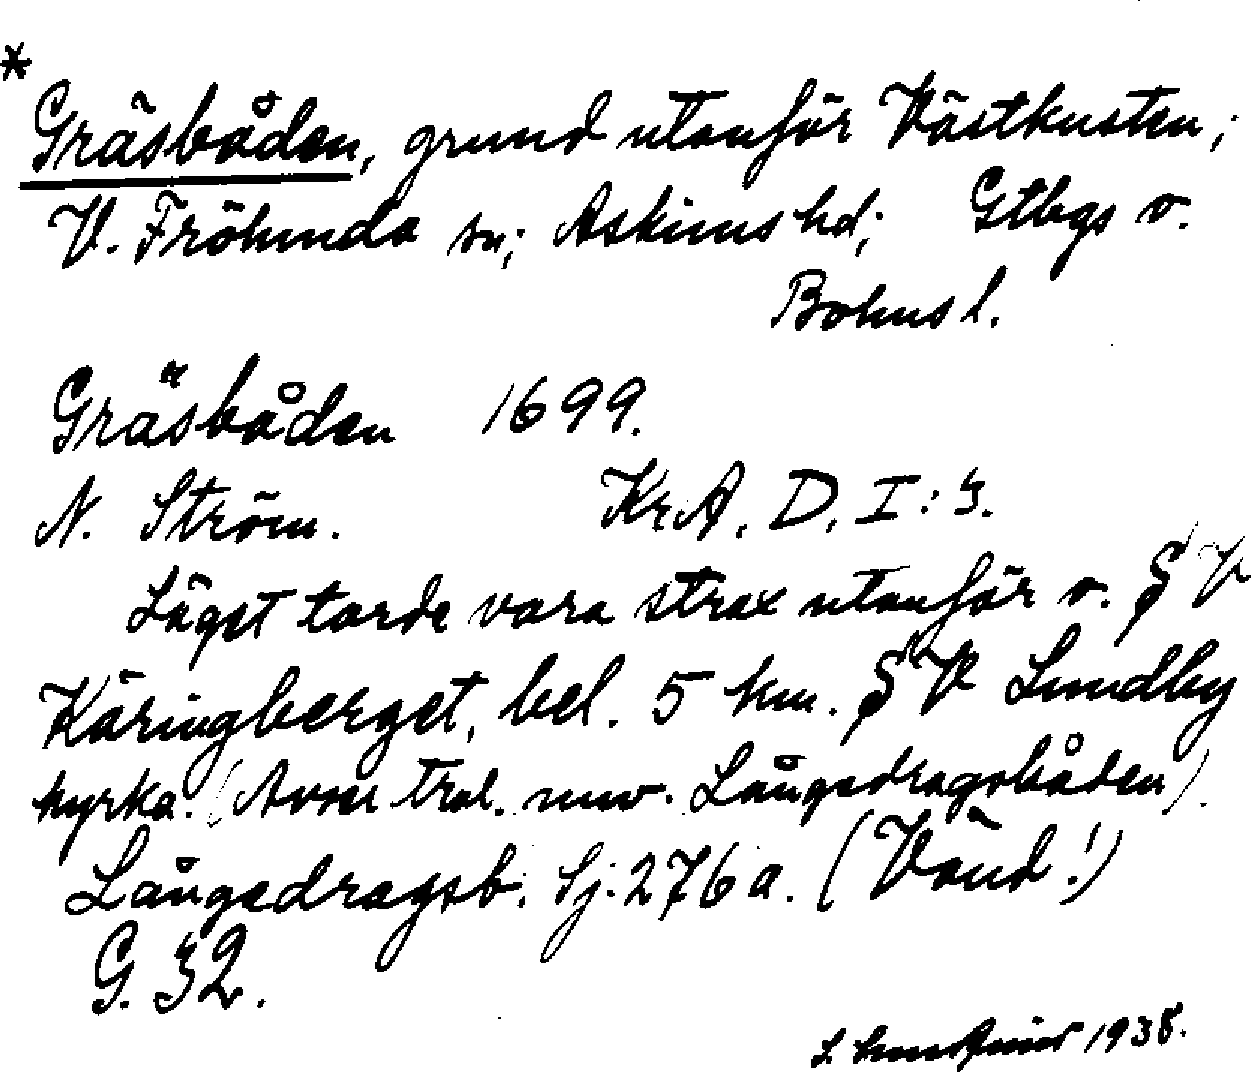 *
Gräsbåden, grund utanför Västkusten;
V. Frölunda sn; Askims hd; Gtbgs o.
Bohus l.
Gräsbåden 1699.
N. Ström. KrA. D. I: 3.
Läget torde vara strax utanför o. § V
Käringberget, bel. 5 km. § V Lundby
kyrka. (Avser trol. nuv. Långedragsbåden).
Långedragsb. Sj. 276 a. (Vänd!)
G. 32.
1938.